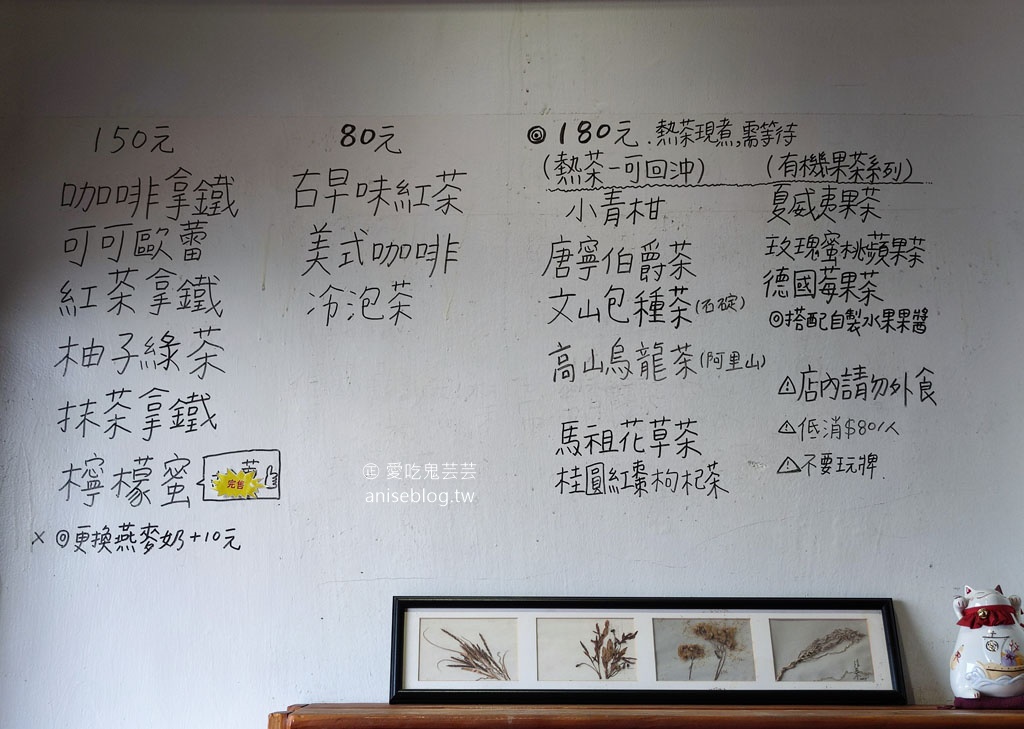 150元
咖啡拿鐵
可可歐蕾
紅茶拿鐵
柚子綠茶
抹茶拿鐵
檸檬蜜
完售
X ◎更換燕麥奶+10元
80元
古早味紅茶
美式咖啡
冷泡茶
◎180元.熱茶現煮,需等待
(熱茶-可回沖)
小青柑
唐寧伯爵茶
文山包種茶(石碇)
高山烏龍茶(阿里山)
馬祖花草茶
桂圓紅棗枸杞茶
(有機果茶系列)
夏威夷果茶
玫瑰蜜桃蘋果茶
德國莓果茶
◎搭配自製水果果醬
⚠店內請勿外食
⚠低消$80/人
⚠不要玩牌
愛吃鬼芸芸
aniseblog.tw